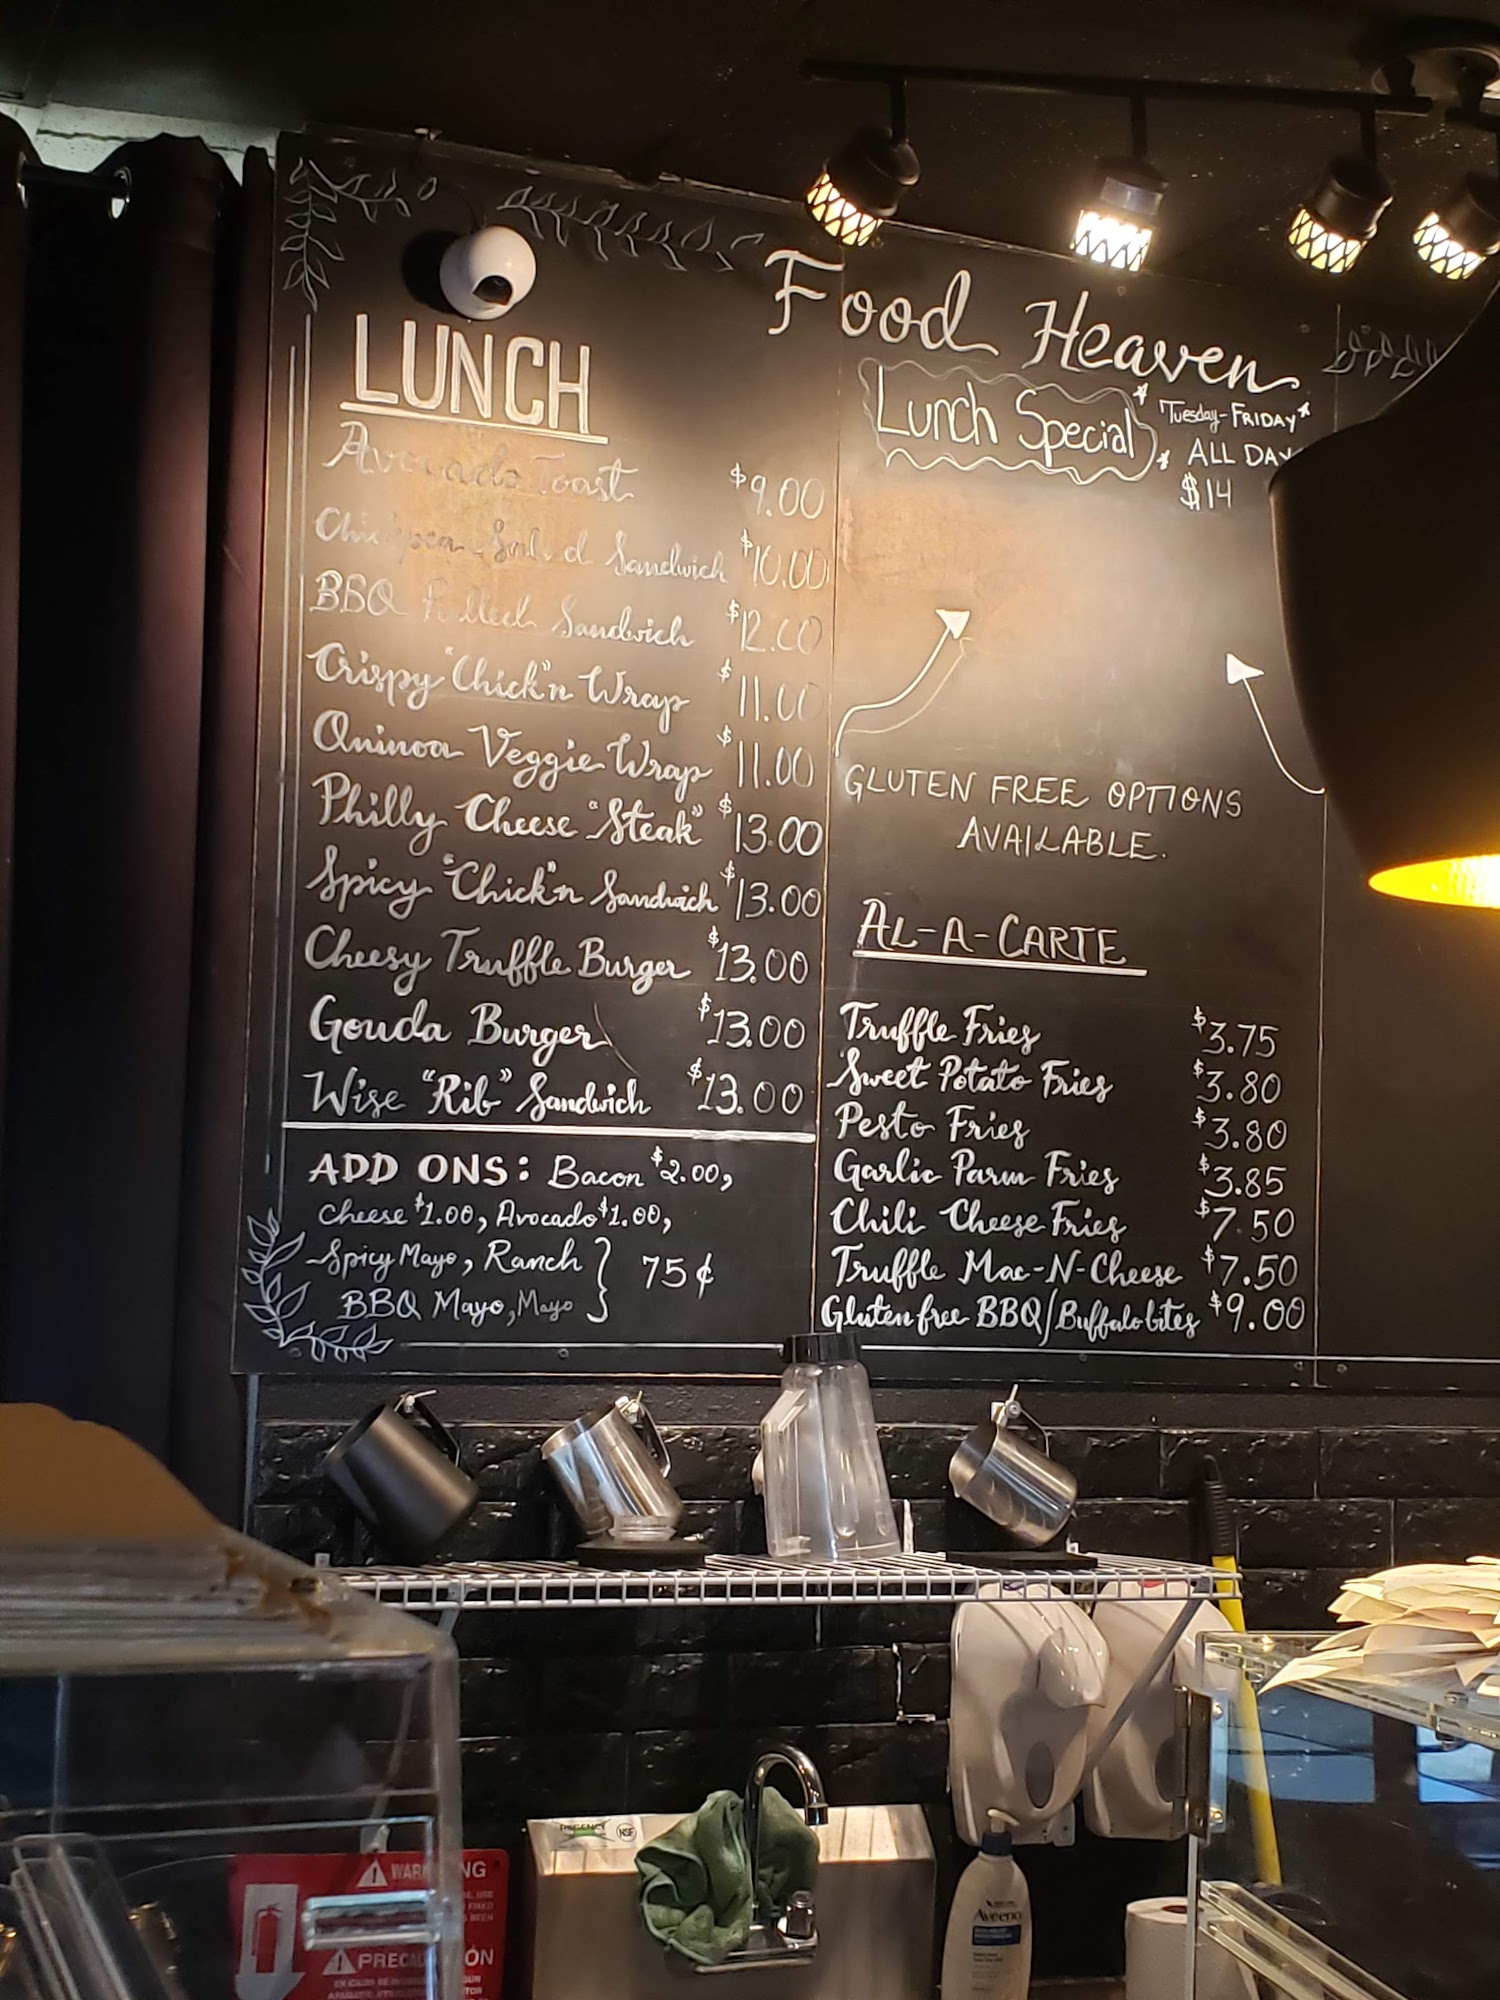 Food Heaven
LUNCH
Avocado Toast $9.00
Chickpea Salad Sandwich $10.00
BBQ Pulled Sandwich $12.00
Crispy "Chick"n Wrap $11.00
Quinoa Veggie Wrap $11.00
Philly Cheese "Steak" $13.00
Spicy "Chick"n Sandwich $13.00
Cheesy Truffle Burger $13.00
Gouda Burger $13.00
Wise "Rib" Sandwich $13.00
ADD ONS: Bacon $2.00,
Cheese $1.00, Avocado $1.00,
Spicy Mayo, Ranch } 75¢
BBQ Mayo, Mayo
Lunch Special
Tuesday-FRIDAY
ALL DAY
$14
GLUTEN FREE OPTIONS
AVAILABLE.
AL-A-CARTE
Truffle Fries $3.75
Sweet Potato Fries $3.80
Pesto Fries $3.80
Garlic Parm Fries $3.85
Chili Cheese Fries $7.50
Truffle Mac-N-Cheese $7.50
Gluten free BBQ/Buffalo bites $9.00
REGENCY NSF
Aveeno